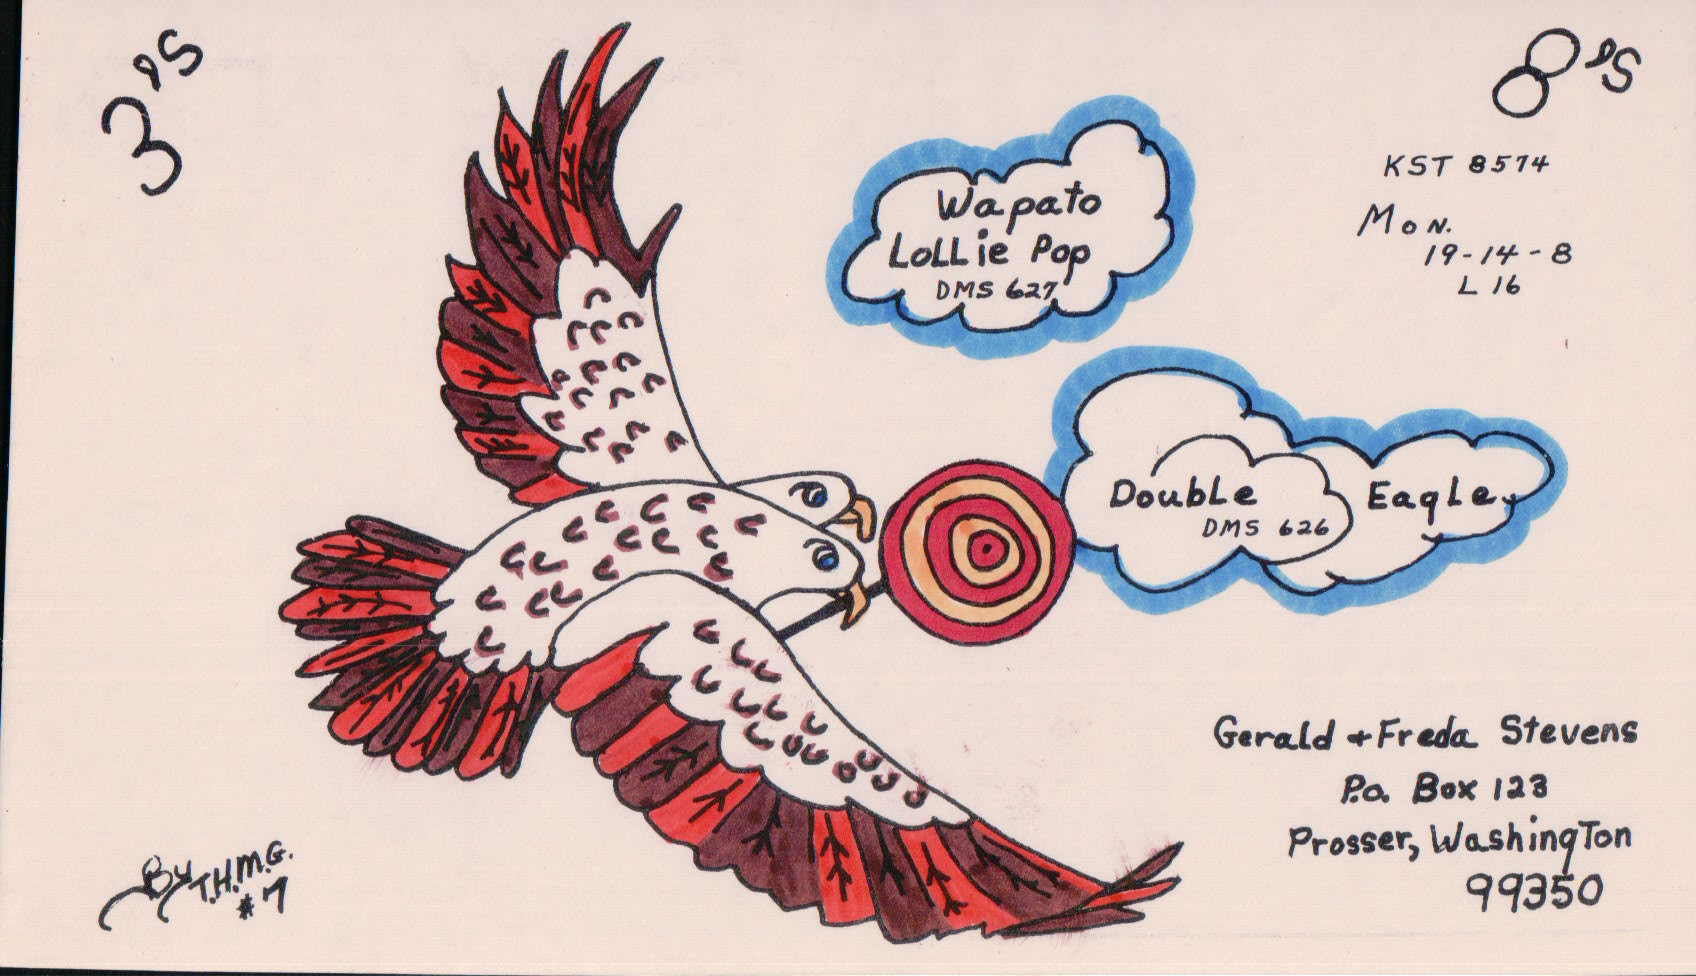 3's
8's
KST 8574
Mon.
19-14-8
L 16
Wapato
LoLLie Pop
DMS 627
Double Eagle
DMS 626
Gerald + Freda Stevens
P.o. Box 123
Prosser, Washington
99350
By T.H.M.G.
#7